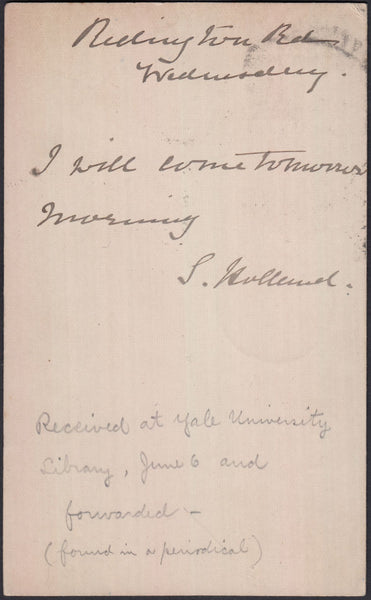 Redington Rd
Wednesday.
I will come tomorrow
morning
S. Holland.
Received at Yale University
Library, June 6 and
forwarded –
(found in a periodical)